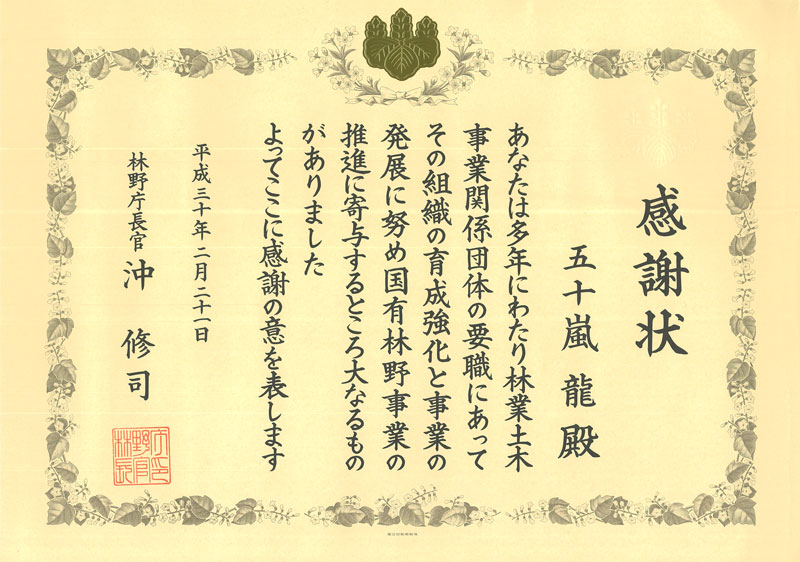 感謝状
五十嵐 龍 殿
あなたは多年にわたり林業土木
事業関係団体の要職にあって
その組織の育成強化と事業の
発展に努め国有林野事業の
推進に寄与するところ大なるもの
がありました
よってここに感謝の意を表します
平成三十年二月二十一日
林野庁長官 沖 修司